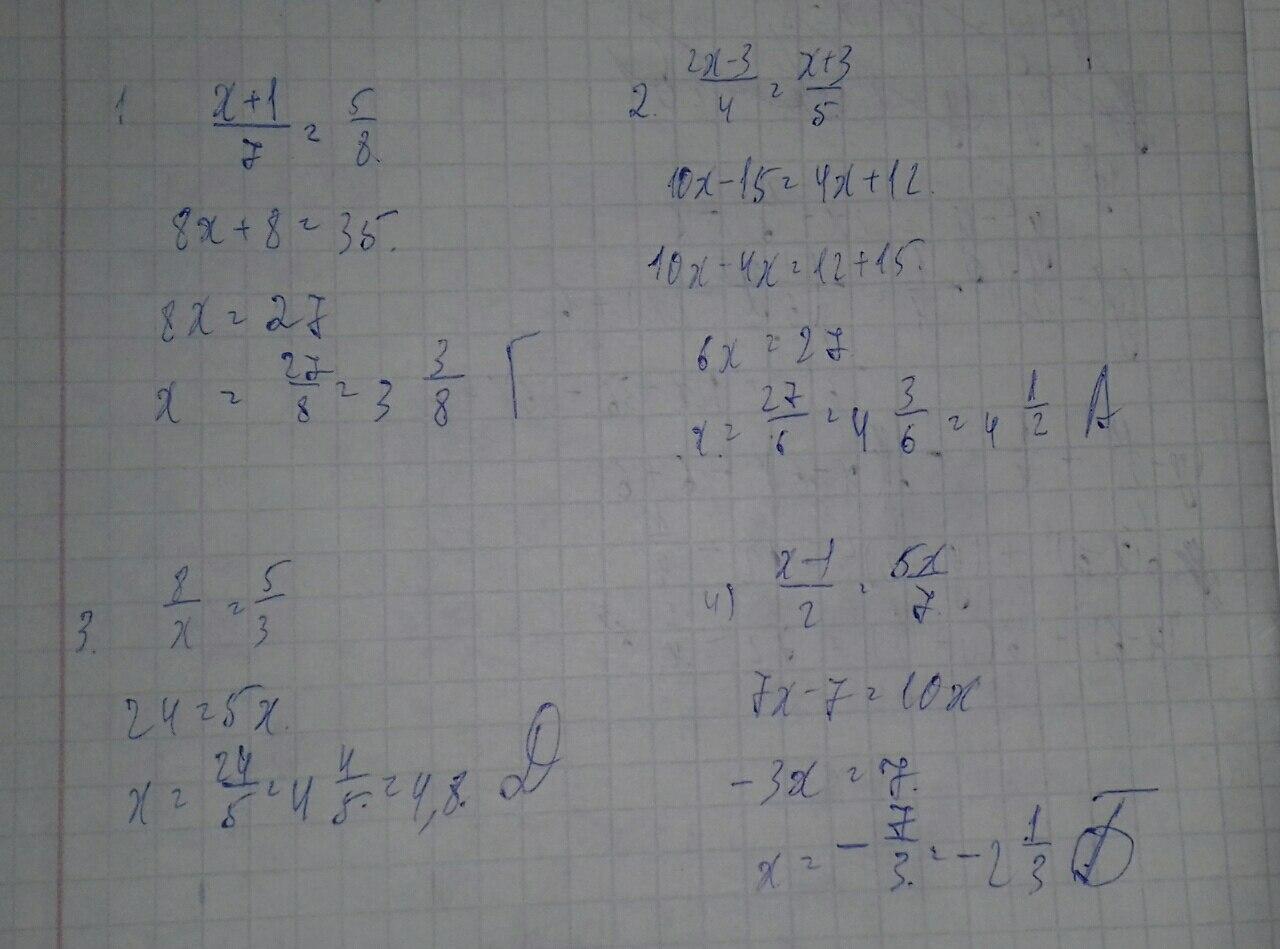 1 (x+1)/7 = 5/8.
8x+8=35.
8x=27
x = 27/8 = 3 3/8 Г
2. (2x-3)/4 = (x+3)/5
10x-15=4x+12.
10x-4x=12+15.
6x=27
x = 27/6 = 4 3/6 = 4 1/2 А
3. 8/x = 5/3
24=5x.
x = 24/5 = 4 4/5 = 4,8. Д
4) (x-1)/2 = 5x/7.
7x-7=10x
-3x=7.
x = -7/3 = -2 1/3 Б